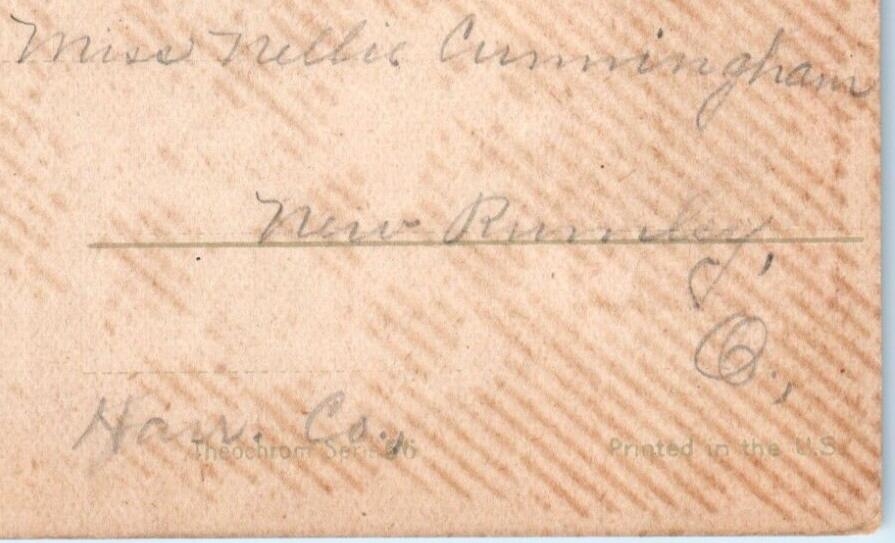 Miss Nellie Cunningham
New Rumley,
O.,
Harr. Co.,
Theochrom Serie
Printed in the U.S.